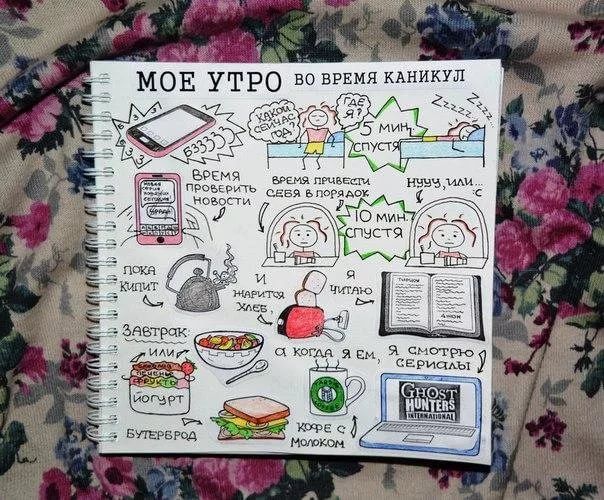 МОЕ УТРО ВО ВРЕМЯ КАНИКУЛ
БЗЗЗЗЗ
КАКОЙ
СЕЙЧАС
ГОД?
ГДЕ
Я?
5 МИН
СПУСТЯ
ZZZZZ... ZZZZ...
ВРЕМЯ
ПРОВЕРИТЬ
НОВОСТИ
НОВАЯ
СЕРИЯ
СЕГОДНЯ!
ВРЕМЯ ПРИВЕСТИ
СЕБЯ В ПОРЯДОК
10 МИН
СПУСТЯ
НУУУ, ИЛИ...
:С
ПОКА
КИПИТ
И
ЖАРИТСЯ
ХЛЕБ,
Я
ЧИТАЮ
ЗАВТРАК:
ИЛИ
ФРУКТЫ
ЙОГУРТ
БУТЕРБРОД
А КОГДА Я ЕМ,
КОФЕ С
МОЛОКОМ
Я СМОТРЮ
СЕРИАЛЫ
GHOST
HUNTERS
INTERNATIONAL